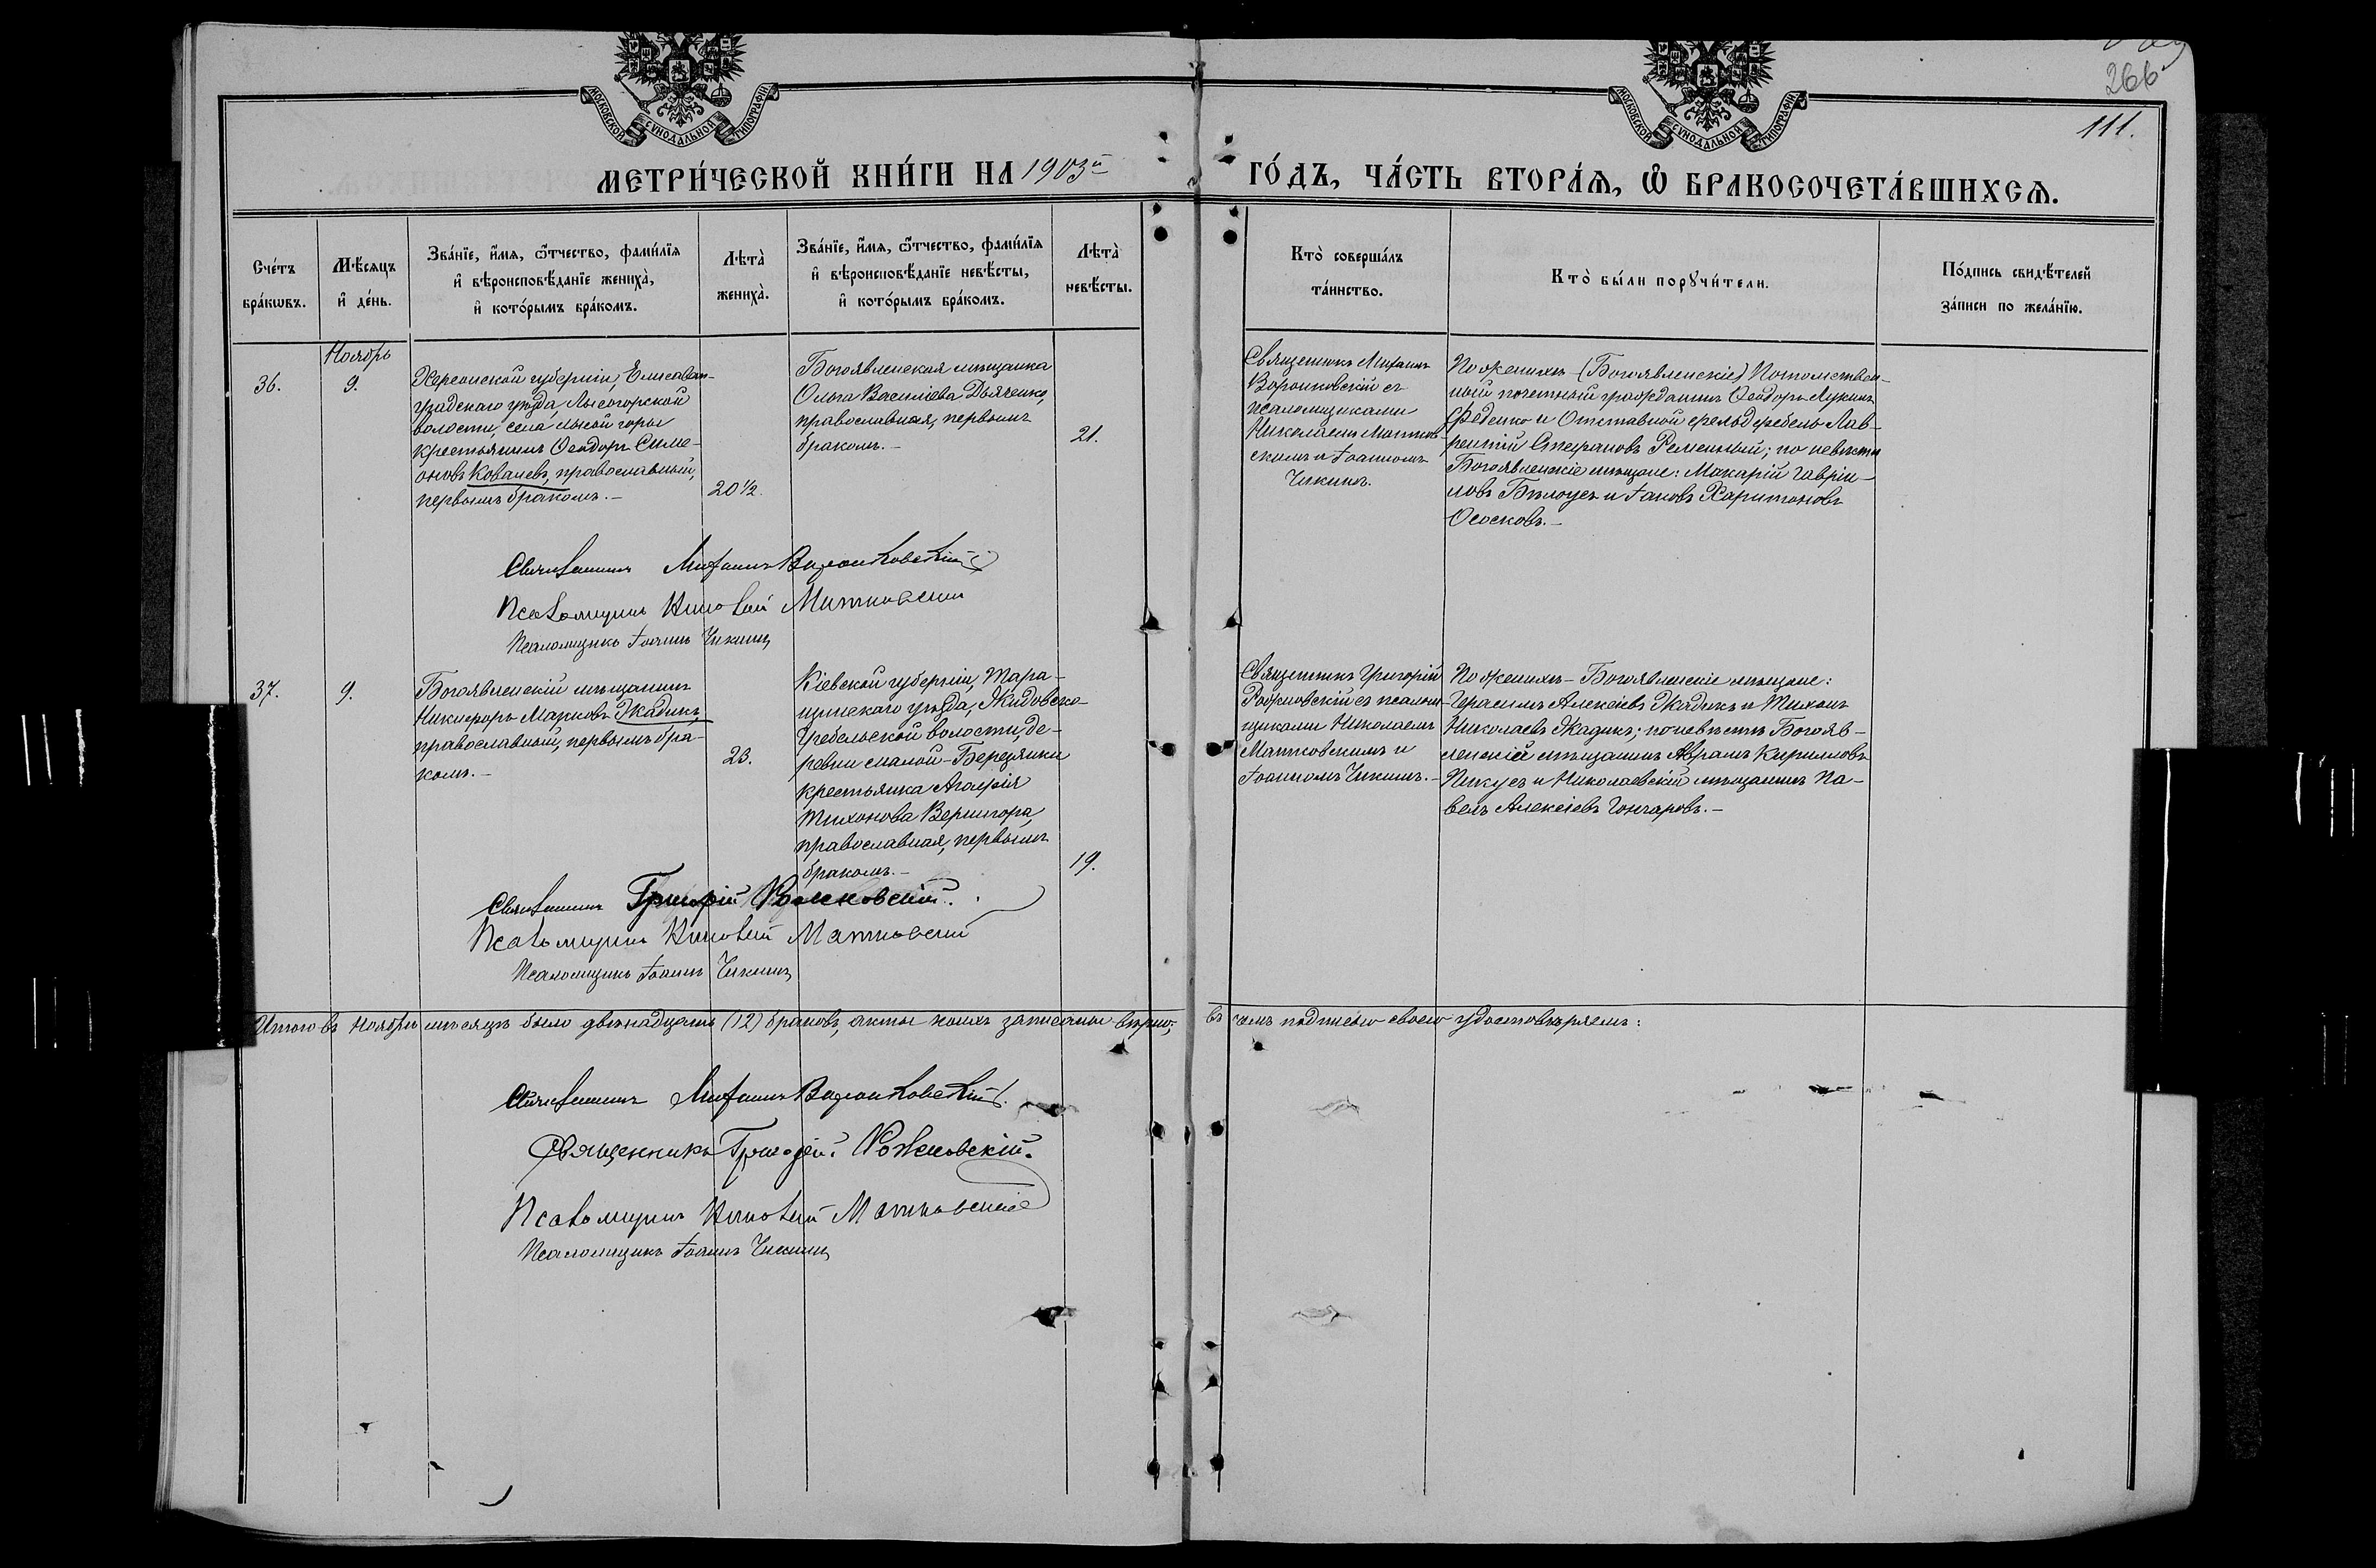 МОСКОВСКОЙ СѴНОДАЛЬНОЙ ТИПОГРАФІИ
МОСКОВСКОЙ СѴНОДАЛЬНОЙ ТИПОГРАФІИ
266
111.
МЕТРИ́ЧЕСКОЙ КНИ́ГИ НА 1903й
ГО́ДЪ, ЧА́СТЬ ВТОРА́Ѧ, Ѽ БРАКОСОЧЕТА́ВШИХСѦ.
Сче́тъ
бра́кѡвъ.
Мѣ́сяцъ
и҆ де́нь.
Зва́нїе, и҆́мѧ, ѻ҆́тчество, фами́лїѧ
и҆ вѣроисповѣ́данїе жениха̀,
и҆ кото́рымъ бра́комъ.
Лѣта̀
жениха̀.
Зва́нїе, и҆́мѧ, ѻ҆́тчество, фами́лїѧ
и҆ вѣроисповѣ́данїе невѣ́сты,
и҆ кото́рымъ бра́комъ.
Лѣта̀
невѣ́сты.
Кто̀ соверша́лъ
та́инство.
Кто̀ бы́ли порꙋчи́тели.
По́дпись свидѣ́телей
за́писи по жела́нїю.
Ноябрь
36.
9.
Херсонской губерніи, Елисавет-
градскаго уѣзда, Лысогорской
волости, села Лысой горы
крестьянинъ Ѳеодоръ Симе-
оновъ Ковалевъ, православный,
первымъ бракомъ.-
20 1/2.
Богоявленская мѣщанка
Ольга Василіева Дьяченко,
православная, первымъ
бракомъ.-
21.
Священникъ Михаилъ
Воронковскій съ
псаломщиками
Николаемъ Матков-
скимъ и Іоанномъ
Чикинъ.
По женихѣ-(Богоявленскіе) Потомствен-
ный почетный гражданинъ Ѳеодоръ Лукинъ
Феденко и Отставной фельдфебель Лав-
рентій Стефановъ Ременный; по невѣстѣ
Богоявленскіе мѣщане: Макарій Гавріи-
ловъ Бѣлоусъ и Іаковъ Харитоновъ
Ососковъ.-
Священникъ Михаилъ Воронковскій
Псаломщикъ Николай Матковскій
Псаломщикъ Іоаннъ Чикинъ
37.
9.
Богоявленскій мѣщанинъ
Никифоръ Марковъ Жадикъ,
православный, первымъ бра-
комъ.-
23.
Кіевской губерніи, Тара-
щинскаго уѣзда, Жидовско-
Гребельской волости, де-
ревни малой-Березянки
крестьянка Агафія
Тихонова Вернигора,
православная, первымъ
бракомъ.-
19.
Священникъ Григорій
Рожновскій съ псалом-
щиками Николаемъ
Матковскимъ и
Іоанномъ Чикинъ.-
По женихѣ-Богоявленскіе мѣщане:
Герасимъ Алексіевъ Жадикъ и Тихонъ
Николаевъ Жадикъ; по невѣстѣ Богояв-
ленскій мѣщанинъ Аврамъ Кириловъ
Пикусъ и Николаевскій мѣщанинъ Па-
велъ Алексіевъ Гончаровъ.-
Священникъ Григорій Рожновскій.
Псаломщикъ Николай Матковскій
Псаломщикъ Іоаннъ Чикинъ
Итого въ Ноябрѣ мѣсяцѣ было двѣнадцать (12) браковъ, акты коихъ записаны вѣрно, въ семъ подписью своею удостовѣряемъ:
Священникъ Михаилъ Воронковскій.
Священникъ Григорій Рожновскій.
Псаломщикъ Николай Матковскій
Псаломщикъ Іоаннъ Чикинъ